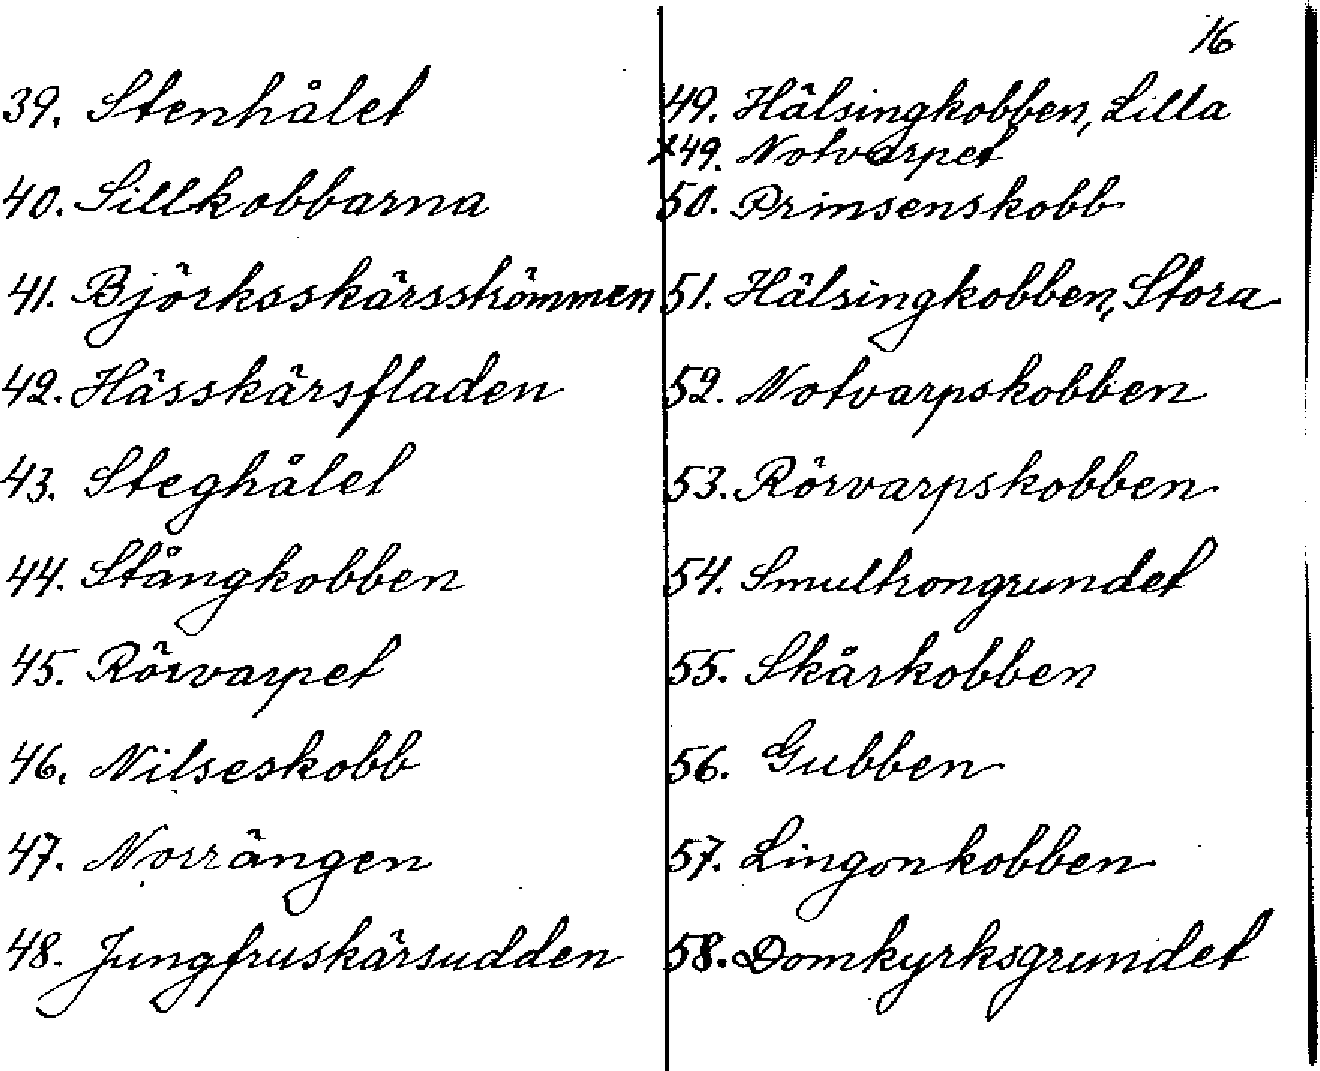 16
39. Stenhålet
40. Sillkobbarna
41. Björksskärsströmmen
42. Hässkärsfladen
43. Steghålet
44. Stångkobben
45. Rörvarpet
46. Nilseskobb
47. Norrängen
48. Jungfruskärsudden
49. Hälsingkobben, Lilla
x49. Notvarpet
50. Prinsenskobb
51. Hälsingkobben, Stora
52. Notvarpskobben
53. Rörvarpskobben
54. Smultrongrundet
55. Skårkobben
56. Gubben
57. Lingonkobben
58. Domkyrksgrundet